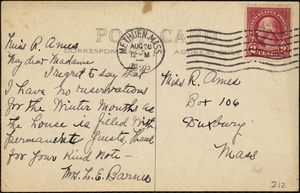 POST CARD
CORRESPONDENCE
METHUEN, MASS.
AUG 26
12-M
Miss R. Ames
My dear Madame
I regret to say that
I have no reservations
for the Winter Months as
the house is filled with
permanent guests, thank
for your kind note -
Mrs. L. E. Barnes
2 CENTS 2
Miss R. Ames
Box 106
Duxbury
Mass
212